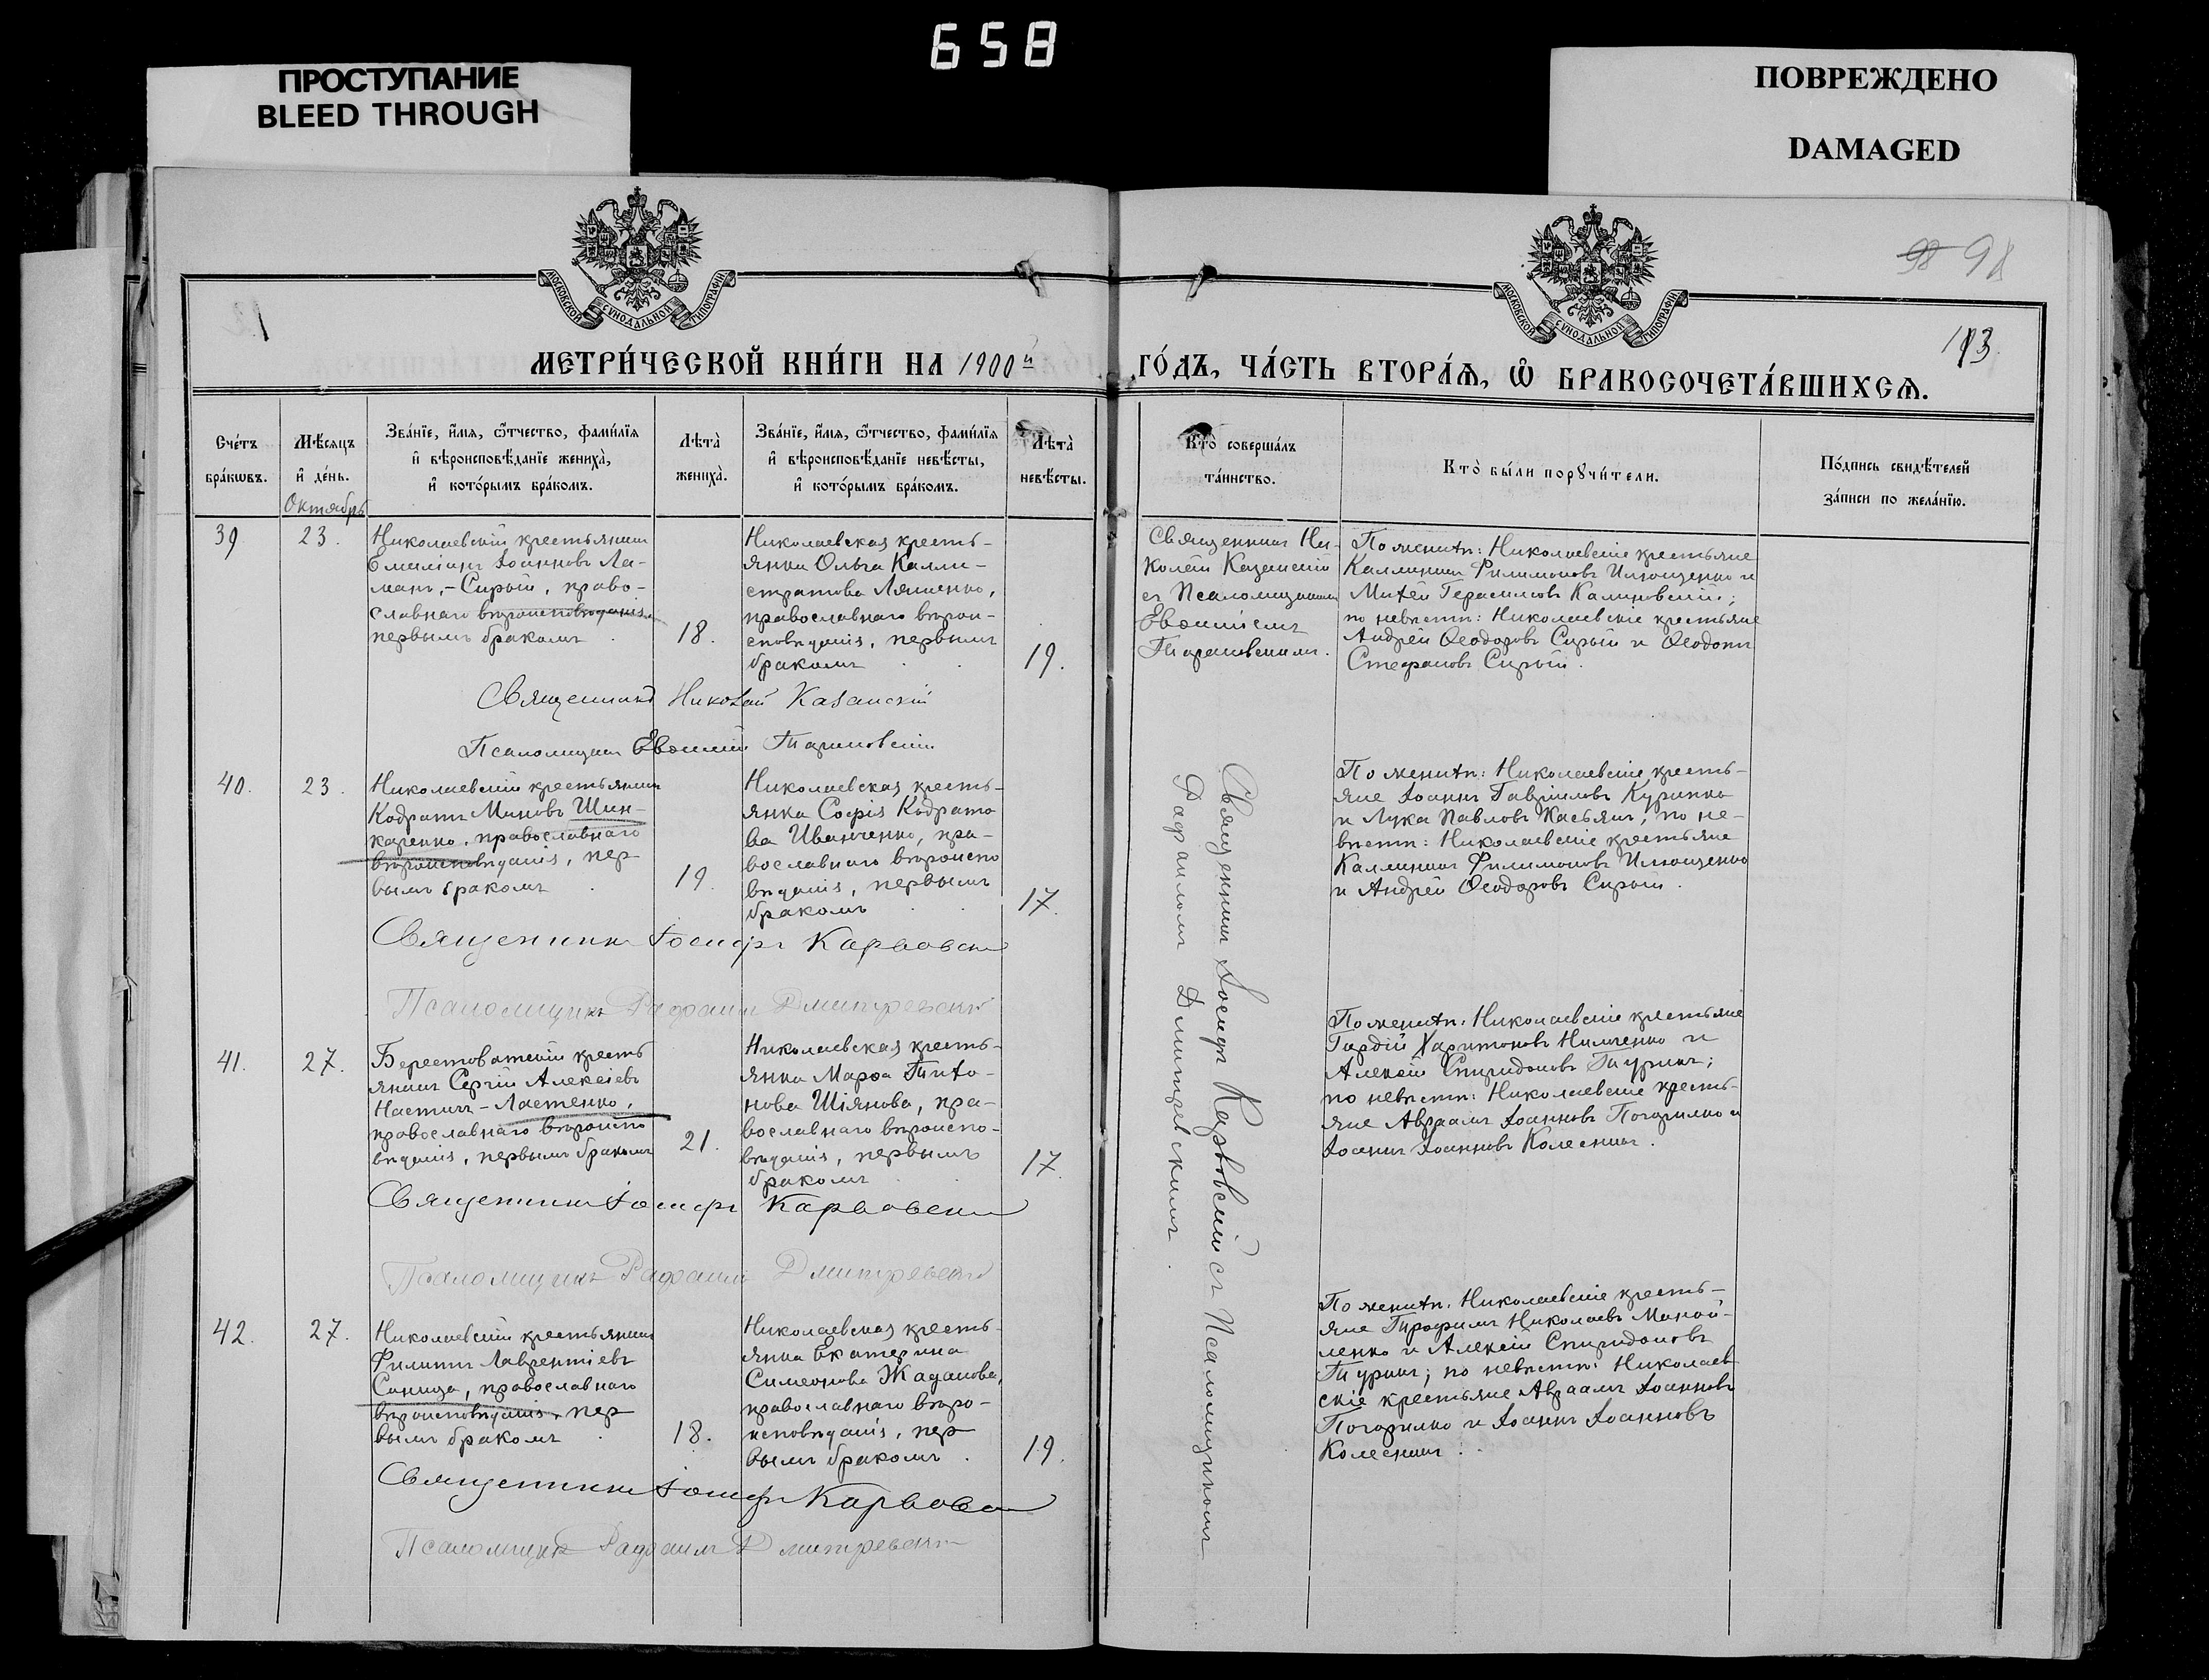 658
ПРОСТУПАНИЕ
BLEED THROUGH
ПОВРЕЖДЕНО
DAMAGED
МОСКОВСКОЙ СУНОДАЛЬНОЙ ТИПОГРАФІИ
МОСКОВСКОЙ СУНОДАЛЬНОЙ ТИПОГРАФІИ
98 98
113.
МЕТРИ́ЧЕСКОЙ КНИ́ГИ НА 1900й
ГО́ДЪ, ЧА́СТЬ ВТОРА́Ѧ, Ѽ БРАКОСОЧЕТА́ВШИХСѦ.
Сче́тъ
бра́кѡвъ.
Мѣ́сѧцъ
и҆ де́нь.
Зва́нїе, и҆́мѧ, ѻ҆́тчество, фами́лїѧ
и҆ вѣроисповѣ́данїе жениха̀,
и҆ кото́рымъ бра́комъ.
Лѣта̀
жениха̀.
Зва́нїе, и҆́мѧ, ѻ҆́тчество, фами́лїѧ
и҆ вѣроисповѣ́данїе невѣ́сты,
и҆ кото́рымъ бра́комъ.
Лѣта̀
невѣ́сты.
Кто̀ соверша́лъ
та́инство.
Кто̀ бы́ли порꙋчи́тели.
По́дпись свидѣ́телей
за́писи по жела́нїю.
Октябрь
39
23.
Николаевскій крестьянинъ
Емиліанъ Іоанновъ Ла-
манъ,-Сирый, право-
славнаго вѣроисповѣданія
первымъ бракомъ
18.
Николаевская кресть-
янка Ольга Калли-
стратова Ляшенко,
православнаго вѣрои-
сповѣданія, первымъ
бракомъ
19.
Священникъ Ни-
колай Казанскій
съ Псаломщикомъ
Евѳиміемъ
По женихѣ: Николаевскіе крестьяне
Каллиникъ Филимоновъ Ильющенко и
Матѳей Герасимовъ Калиновскій;
по невѣстѣ: Николаевскіе крестьяне
Андрей Ѳеодоровъ Сирый и Ѳеодотъ
Стефановъ Сирый.
Священникъ Николай Казанскій
Псаломщикъ Евѳимій
40.
23.
Николаевскій крестьянинъ
Кодратъ Миновъ Шин-
каренко, православнаго
вѣроисповѣданія, пер
вымъ бракомъ
19.
Николаевская кресть-
янка Софія Кодрато
ва Иванченко, пра-
вославнаго вѣроиспо
вѣданія, первымъ
бракомъ
17.
По женихѣ: Николаевскіе кресть-
яне Іоаннъ Гавріиловъ Курипко
и Лука Павловъ Касьянъ; по не-
вѣстѣ: Николаевскіе крестьяне
Каллиникъ Филимоновъ Ильющенко
и Андрей Ѳеодоровъ Сирый.
Священникъ Іосифъ Карповскій
Псаломщикъ Рафаилъ Дмитревскій
Священникъ Іосифъ Карповскій съ Псаломщикомъ
Рафаиломъ Дмитревскимъ.
41.
27.
Берестоватскій кресть
янинъ Сергій Алексіевъ
Настичъ-Ластенко,
православнаго вѣроиспо
вѣданія, первымъ бракомъ
21.
Николаевская кресть-
янка Марѳа Титѳ-
нова Шіянова, пра-
вославнаго вѣроиспо-
вѣданія, первымъ
бракомъ
17.
По женихѣ: Николаевскіе крестьяне
Гордій Харитоновъ Нимченко и
Алексій Спиридоновъ Туринъ;
по невѣстѣ: Николаевскіе кресть-
яне Авраамъ Іоанновъ Погорилко и
Іоаннъ Іоанновъ Колесникъ.
Священникъ Іосифъ Карповскій
Псаломщикъ Рафаилъ Дмитревскій
42.
27.
Николаевскій крестьянинъ
Филиппъ Лаврентіевъ
Синица, православнаго
вѣроисповѣданія, пер
вымъ бракомъ
18.
Николаевская кресть-
янка Екатерина
Симеонова Жаданова,
православнаго вѣро-
исповѣданія, пер
вымъ бракомъ.
19.
По женихѣ: Николаевскіе кресть-
яне Трофимъ Николаевъ Маной-
ленко и Алексій Спиридоновъ
Туринъ; по невѣстѣ: Николаев
скіе крестьяне Авраамъ Іоанновъ
Погорилко и Іоаннъ Іоанновъ
Колесникъ.
Священникъ Іосифъ Карповскій
Псаломщикъ Рафаилъ Дмитревскій